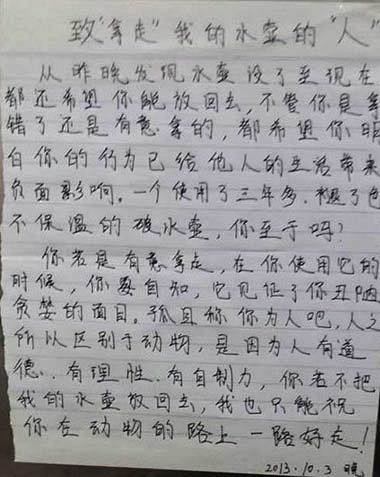 致“拿走”我的水壶的“人”
从昨晚发现水壶没了至现在
都还希望你能放回去，不管你是拿
错了还是有意拿的，都希望你明
白你的行为已给他人的生活带来
负面影响。一个使用了三年多、褪了色
不保温的破水壶，你至于吗？
你若是有意拿走，在你使用它的
时候，你要自知，它见证了你丑陋
贪婪的面目。孤且称你为人吧，人之
所以区别于动物，是因为人有道
德、有理性、有自制力，你若不把
我的水壶放回去，我也只能祝
你在动物的路上一路好走！
2013.10.3 晚